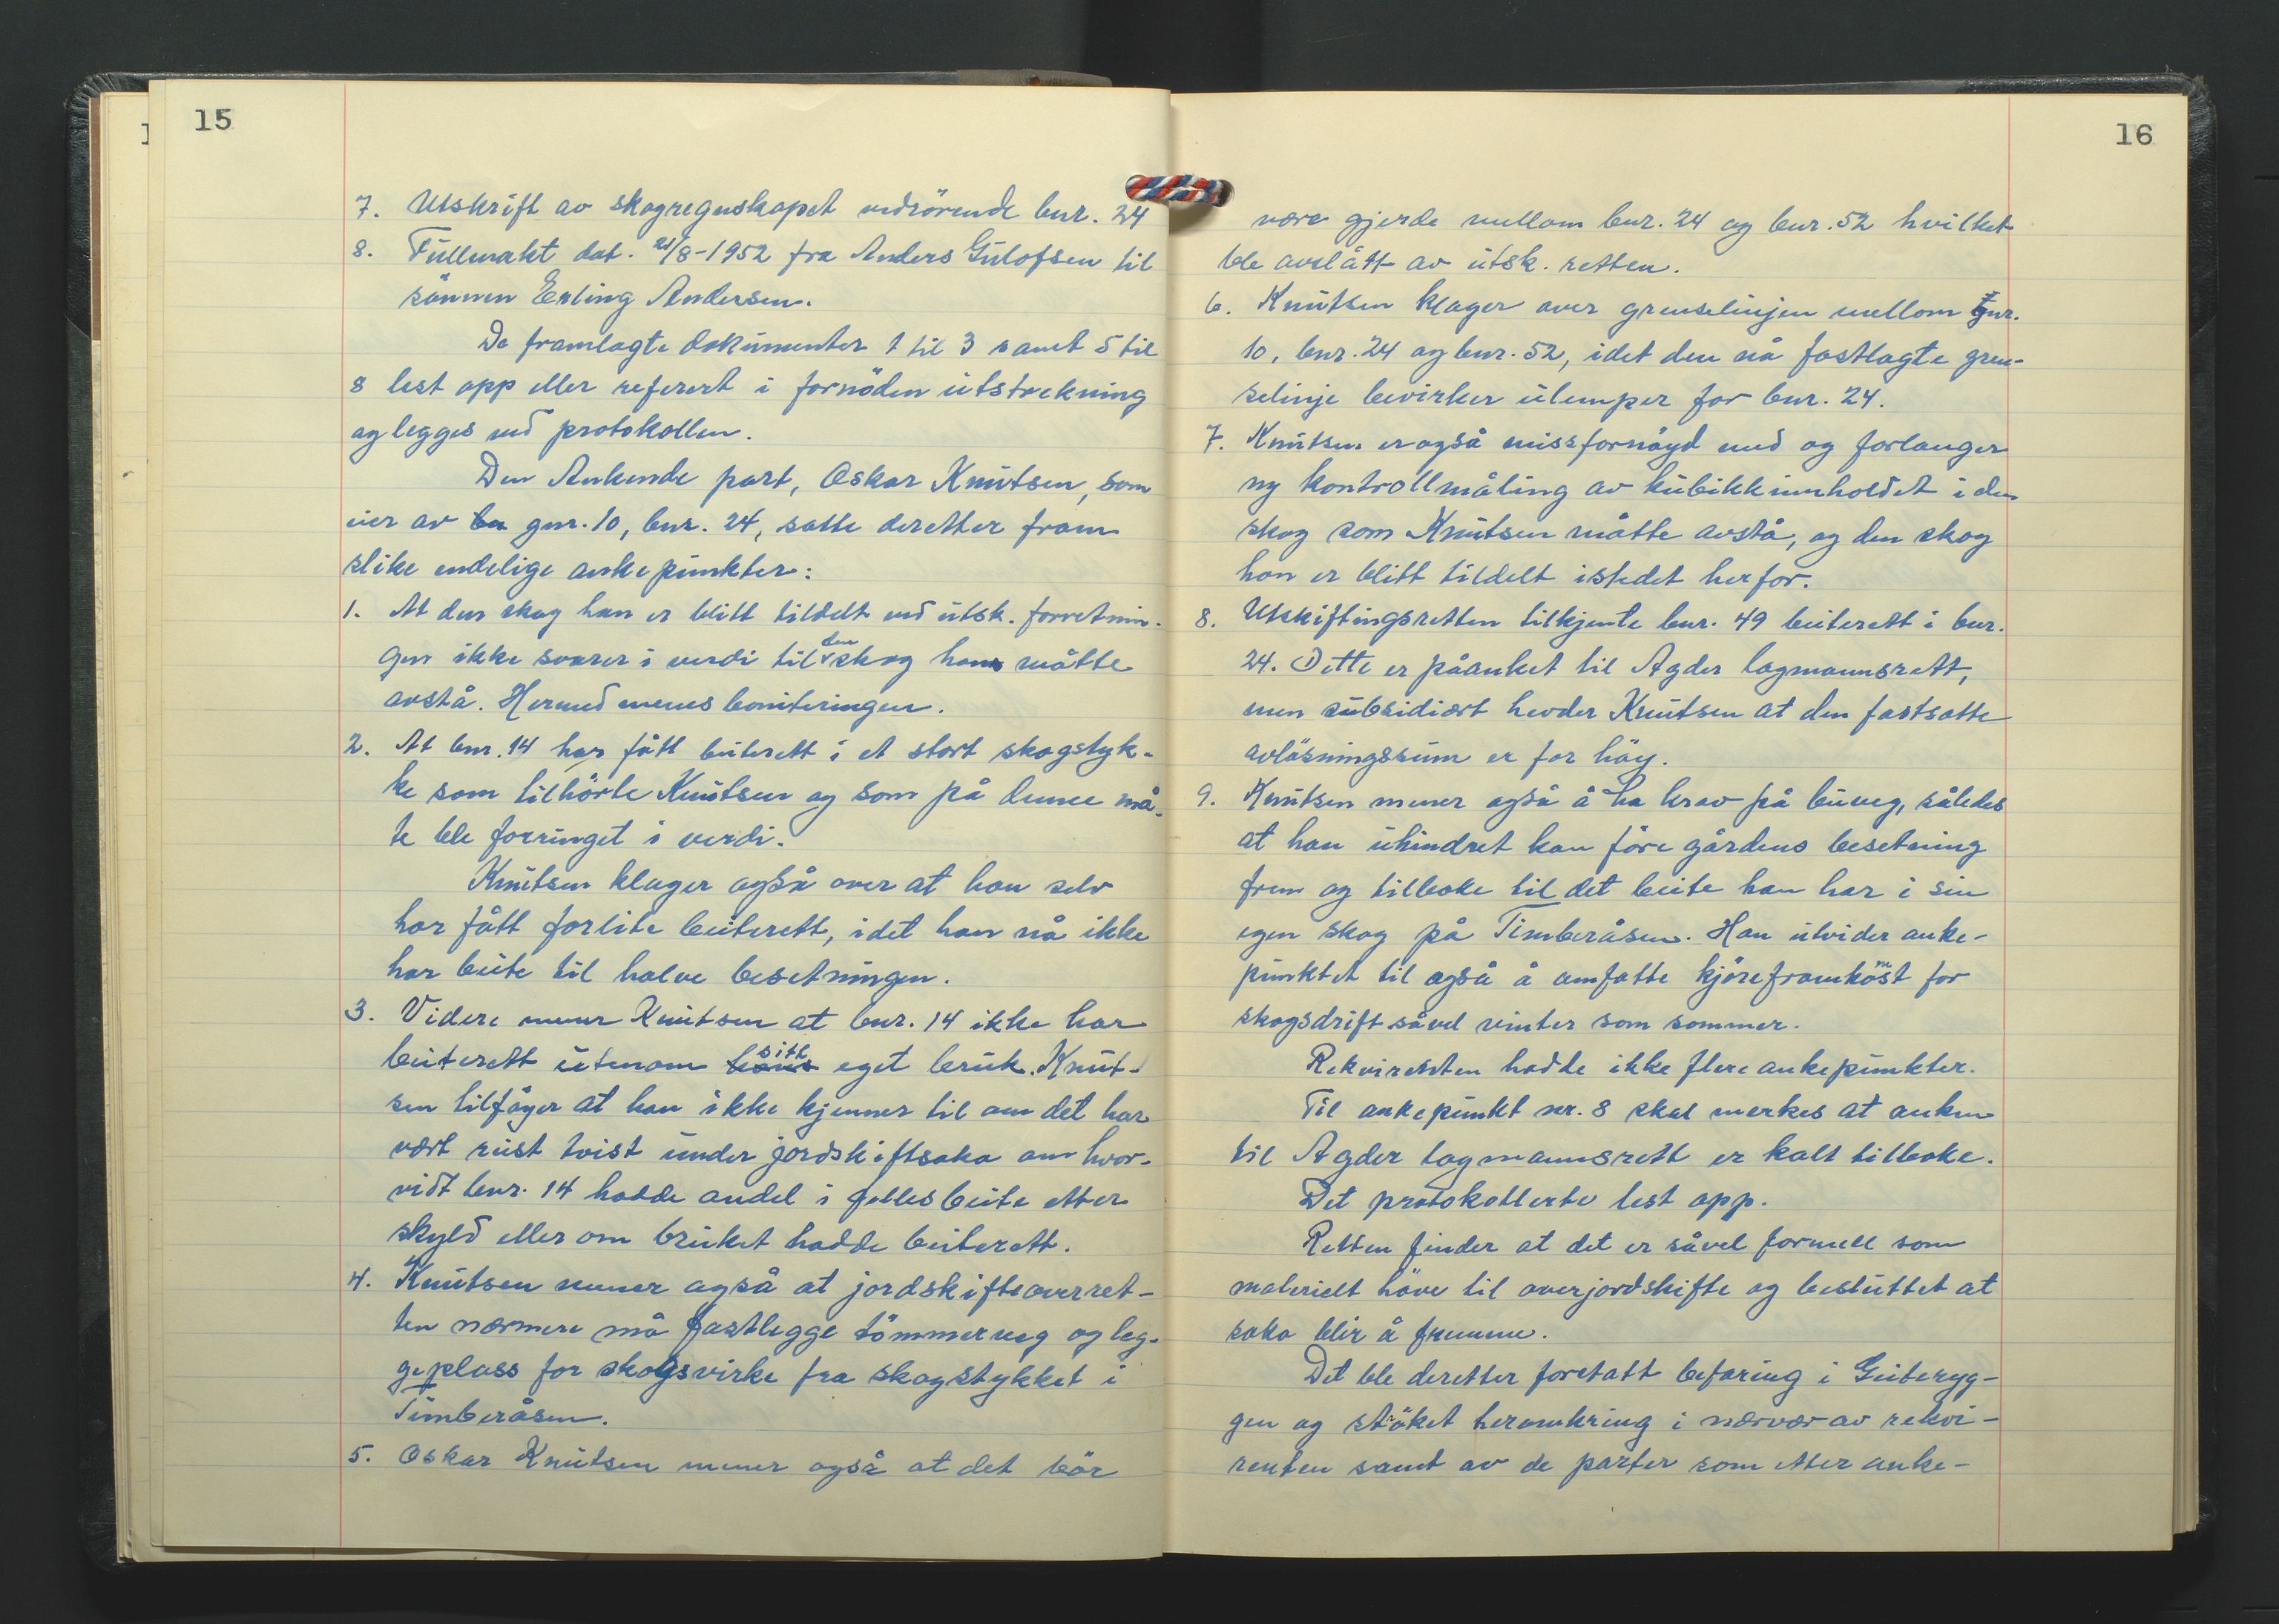 15
7. Utskrift av skogregnskapet vedrörende bnr. 24
8. Fullmakt dat. 21/8-1952 fra Anders Gulofsen til
sönnen Erling Andersen.
De framlagte dokumenter 1 til 3 samt 5 til
8 lest opp eller referert i fornöden utstrekning
og legges ved protokollen.
Den Ankende part, Oskar Knutsen, som
eier av bn gnr. 10, bnr. 24, satte deretter fram
slike endelige ankepunkter:
1. At den skog han er blitt tildelt ved utsk. forretnin-
gen ikke svarer i verdi til den skog han måtte
avstå. Hermed menes boniteringen.
2. At bnr. 14 har fått beiterett i et stort skogstyk-
ke som tilhörte Knutsen og som på denne må-
te ble forringet i verdi.
Knutsen klager også over at han selv
har fått forlite beiterett, idet han nå ikke
har beite til halve besetningen.
3. Videre mener Knutsen at bnr. 14 ikke har
beiterett utenom hans sitt eget bruk. Knut-
sen tilföyer at han ikke kjenner til om det har
vært reist tvist under jordskiftsaka om hvor-
vidt bnr. 14 hadde andel i fellesbeite etter
skyld eller om bruket hadde beiterett.
4. Knutsen mener også at jordskifteoverret-
ten nærmere må fastlegge tömmerveg og leg-
geplass for skogsvirke fra skogstykket i
Timberåsen.
5. Oskar Knutsen mener også at det bör
16
være gjerde mellom bnr. 24 og bnr. 52 hvilket
ble avslått av utsk. retten.
6. Knutsen klager over grenselinjen mellom gnr.
10, bnr. 24 og bnr. 52, idet den nå fastlagte gren-
selinje bevirker ulemper for bnr. 24.
7. Knutsen er også missfornöyd med og forlanger
ny kontrollmåling av kubikkinnholdet i den
skog som Knutsen måtte avstå, og den skog
han er blitt tildelt istedet herfor.
8. Utskiftingsretten tilkjente bnr. 49 beiterett i bnr.
24. Dette er påanket til Agder lagmannsrett,
men subsidiært hevder Knutsen at den fastsatte
avlösningssum er for höy.
9. Knutsen mener også å ha krav på buveg, således
at han uhindret kan före gårdens besetning
frem og tilbake til det beite han har i sin
egen skog på Timberåsen. Han utvider anke-
punktet til også å omfatte kjöreframkomst for
skogsdrift såvel vinter som sommer.
Rekvirenten hadde ikke flere ankepunkter.
Til ankepunkt nr. 8 skal merkes at anken
til Agder lagmannsrett er kalt tilbake.
Det protokollerte lest opp.
Retten finder at det er såvel formell som
materielt höve til overjordskifte og besluttet at
saka blir å fremme.
Det ble deretter foretatt befaring i Geiteryg-
gen og ströket heromkring i nærvær av rekvi-
renten samt av de parter som etter anke-